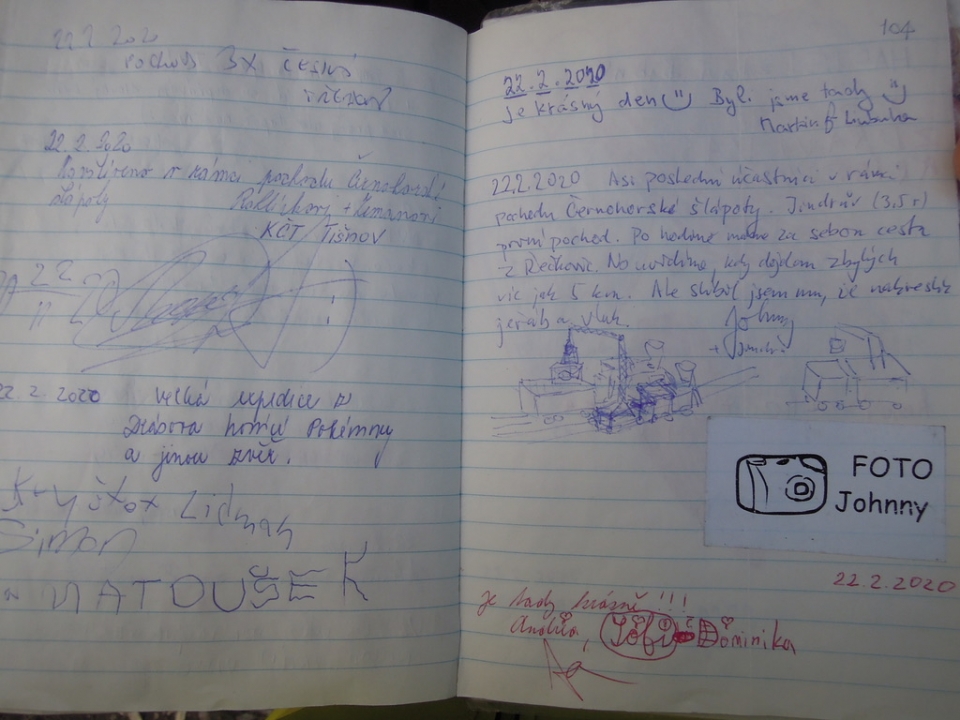 22.2.2020
pochod 3x český
22.2.2020
v rámci pochodu Černohorské
šlápoty
KČT Tišnov
22
22.2.2020 velká expedice
homí Pokémny
a jinou zvěř.
Kryštox Zidman
Simon
MATOUŠEK
104
22.2.2020
je krásný den Byl. jsme tady
Martin & Lubuška
22.2.2020 Asi poslední účastníci v rámci
pochodu Černohorské šlápoty. Jindrův (3,5r)
první pochod. Po hodině máme za sebou cestu
z Řečkovic. No uvidíme, kdy dojdem zbylých
víc jak 5 km. Ale slíbil jsem mu, že nakreslíš
jeřáb a vlak. Johnny
+ Jindr.
FOTO
Johnny
22.2.2020
Je tady krásně !!!
Andrea, Tobi Dominika